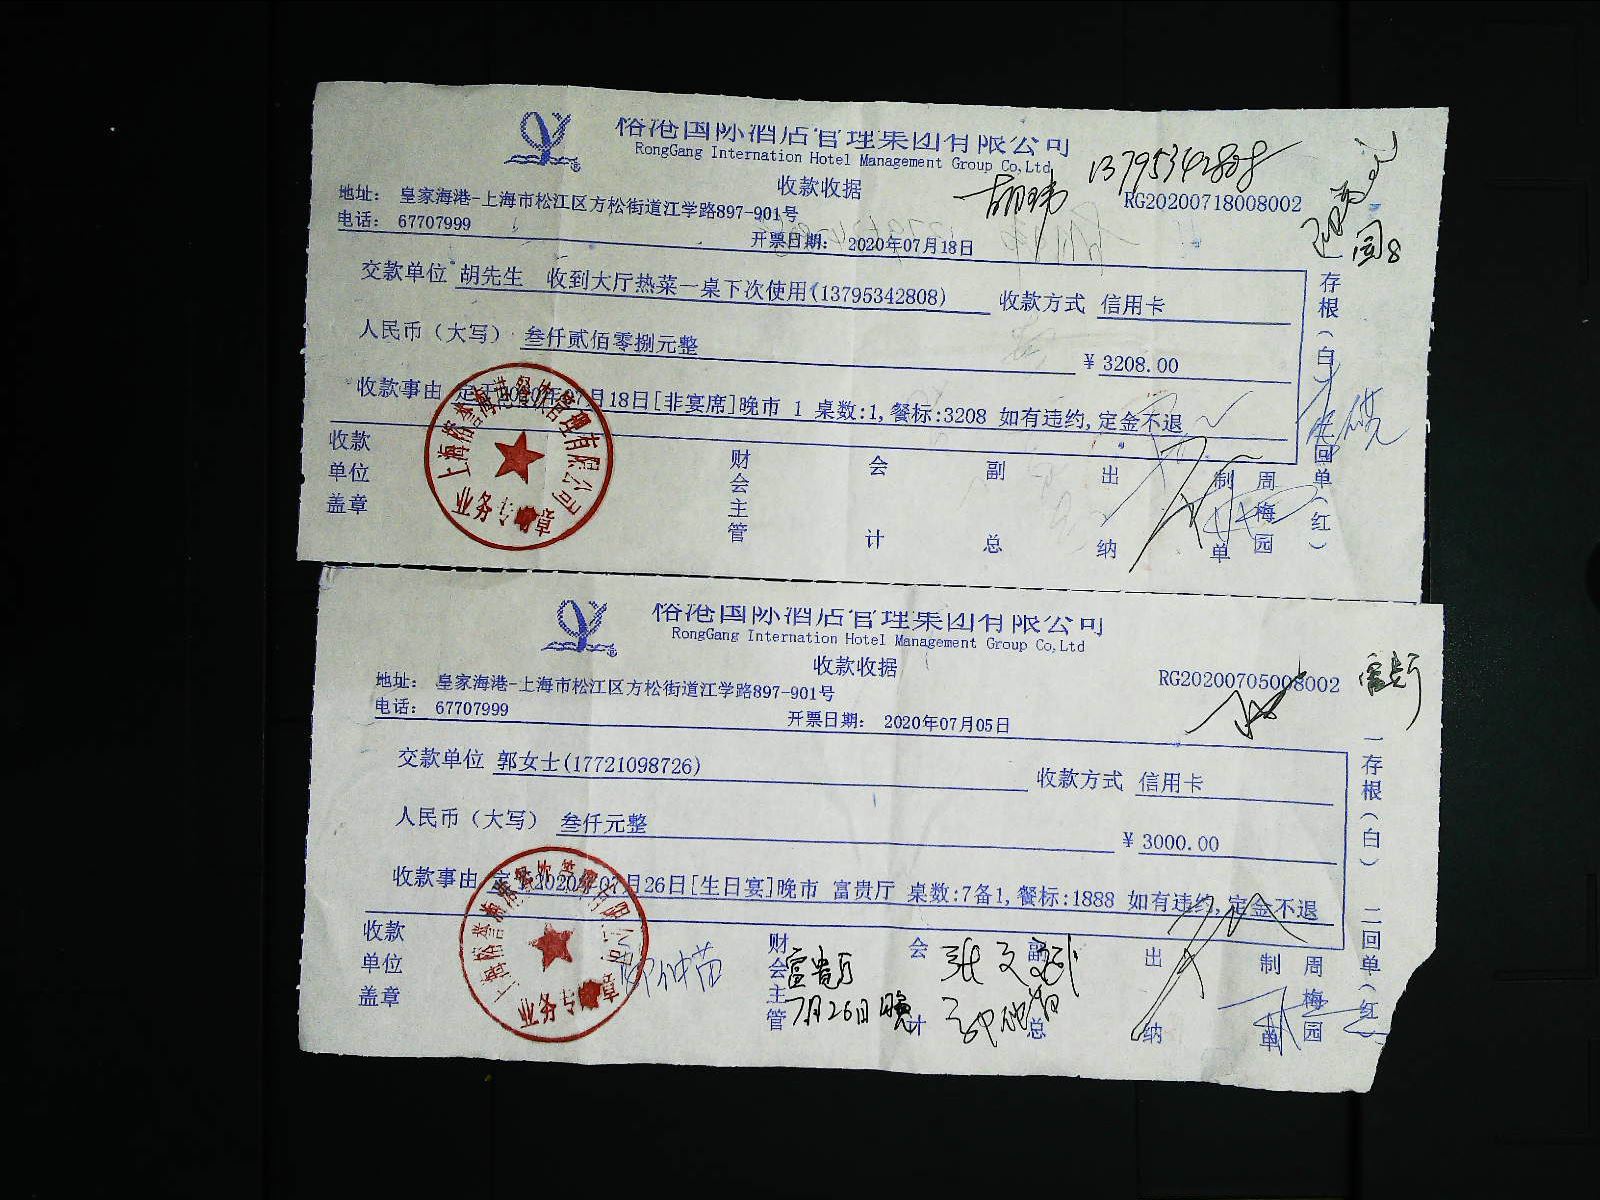 裕港国际酒店管理集团有限公司
RongGang Internation Hotel Management Group Co,Ltd
收款收据
胡玮
13795342808
RG20200718008002
地址： 皇家海港-上海市松江区方松街道江学路897-901号
电话： 67707999
开票日期： 2020年07月18日
交款单位 胡先生 收到大厅热菜一桌下次使用(13795342808) 收款方式 信用卡
人民币（大写） 叁仟贰佰零捌元整 ￥3208.00
收款事由 定于2020年07月18日[非宴席]晚市 1 桌数:1,餐标:3208 如有违约,定金不退
收款单位盖章 财会主管 会计 副总 出纳 制单 周梅园
存根（白） 二回单（红）
业务专用章
裕港国际酒店管理集团有限公司
RongGang Internation Hotel Management Group Co,Ltd
收款收据
RG20200705008002
地址： 皇家海港-上海市松江区方松街道江学路897-901号
电话： 67707999
开票日期： 2020年07月05日
交款单位 郭女士(17721098726) 收款方式 信用卡
人民币（大写） 叁仟元整 ￥3000.00
收款事由 定于2020年07月26日[生日宴]晚市 富贵厅 桌数:7备1,餐标:1888 如有违约,定金不退
收款单位盖章 财会主管 会计 副总 出纳 制单 周梅园
富贵厅
7月26日晚
一存根（白） 二回单（红）
业务专用章